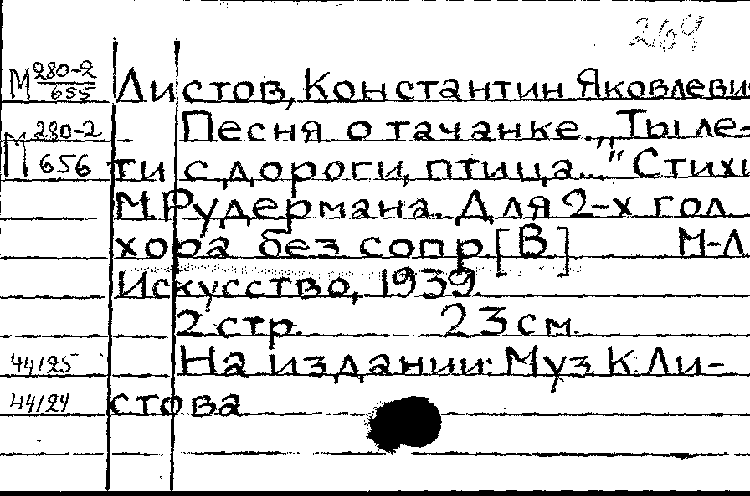 264
М 280-2/655 Листов, Константин Яковлеви
М 280-2/656 Песня о тачанке. „Ты ле-
ти с дороги, птица..." Стихи
М. Рудермана. Для 2-х гол
хора без сопр. [В] М-Л
Искусство, 1939
2 стр. 23 см.
44125 На издании: Муз К Ли-
44124 стова